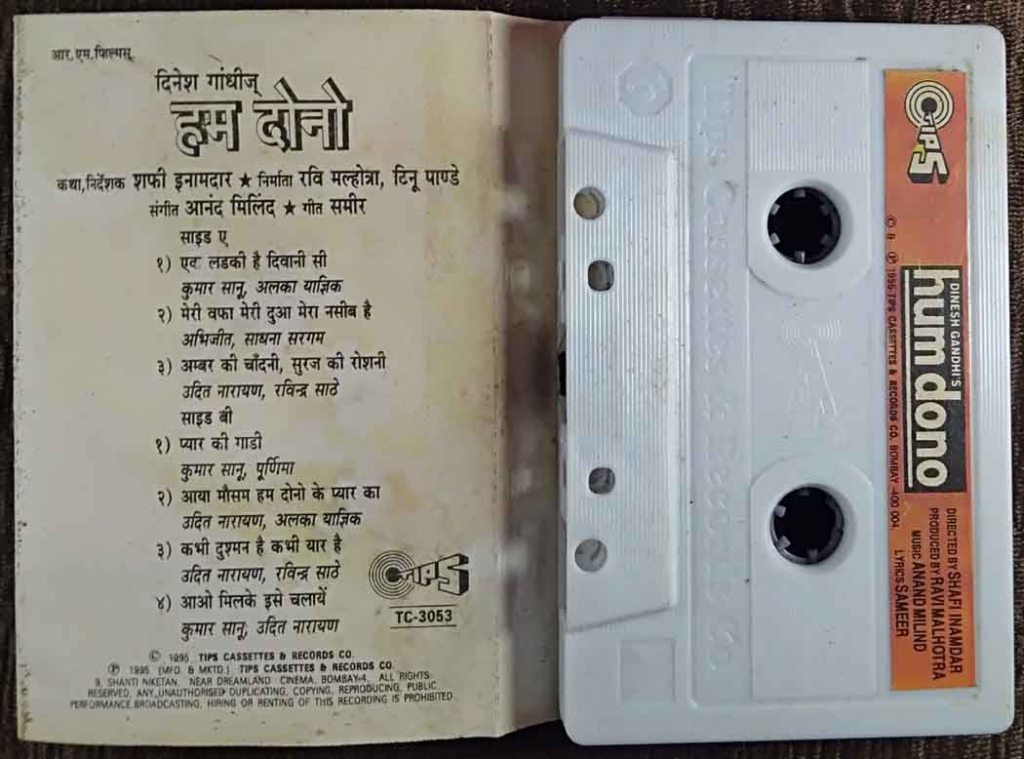 आर.एम.फिल्मस्
दिनेश गांधीज्
हम दोनो
कथा,निर्देशक शफी इनामदार ★ निर्माता रवि मल्होत्रा, टिनू पाण्डे
संगीत आनंद मिलिंद ★ गीत समीर
साइड ए
१) एक लडकी है दिवानी सी
कुमार सानू, अलका याज्ञिक
२) मेरी वफा मेरी दुआ मेरा नसीब है
अभिजीत, साधना सरगम
३) अम्बर की चाँदनी, सुरज की रोशनी
उदित नारायण, रविन्द्र साठे
साइड बी
१) प्यार की गाडी
कुमार सानू, पूर्णिमा
२) आया मौसम हम दोनो के प्यार का
उदित नारायण, अलका याज्ञिक
३) कभी दुश्मन है कभी यार है
उदित नारायण, रविन्द्र साठे
४) आओ मिलके इसे चलायें
कुमार सानू, उदित नारायण
TIPS
TC-3053
© 1995 TIPS CASSETTES & RECORDS CO.
℗ 1995 (MFD. & MKTD.) TIPS CASSETTES & RECORDS CO.
9, SHANTI NIKETAN, NEAR DREAMLAND CINEMA, BOMBAY-4. ALL RIGHTS
RESERVED. ANY UNAUTHORISED DUPLICATING, COPYING, REPRODUCING, PUBLIC
PERFORMANCE BROADCASTING, HIRING OR RENTING OF THIS RECORDING IS PROHIBITED.
Tips Cassettes & Records Co
TIPS
DINESH GANDHI'S
hum dono
© & ℗ 1995 TIPS CASSETTES & RECORDS CO. BOMBAY-400 004.
DIRECTED BY SHAFI INAMDAR
PRODUCED BY RAVI MALHOTRA
MUSIC ANAND MILIND
LYRICS SAMEER